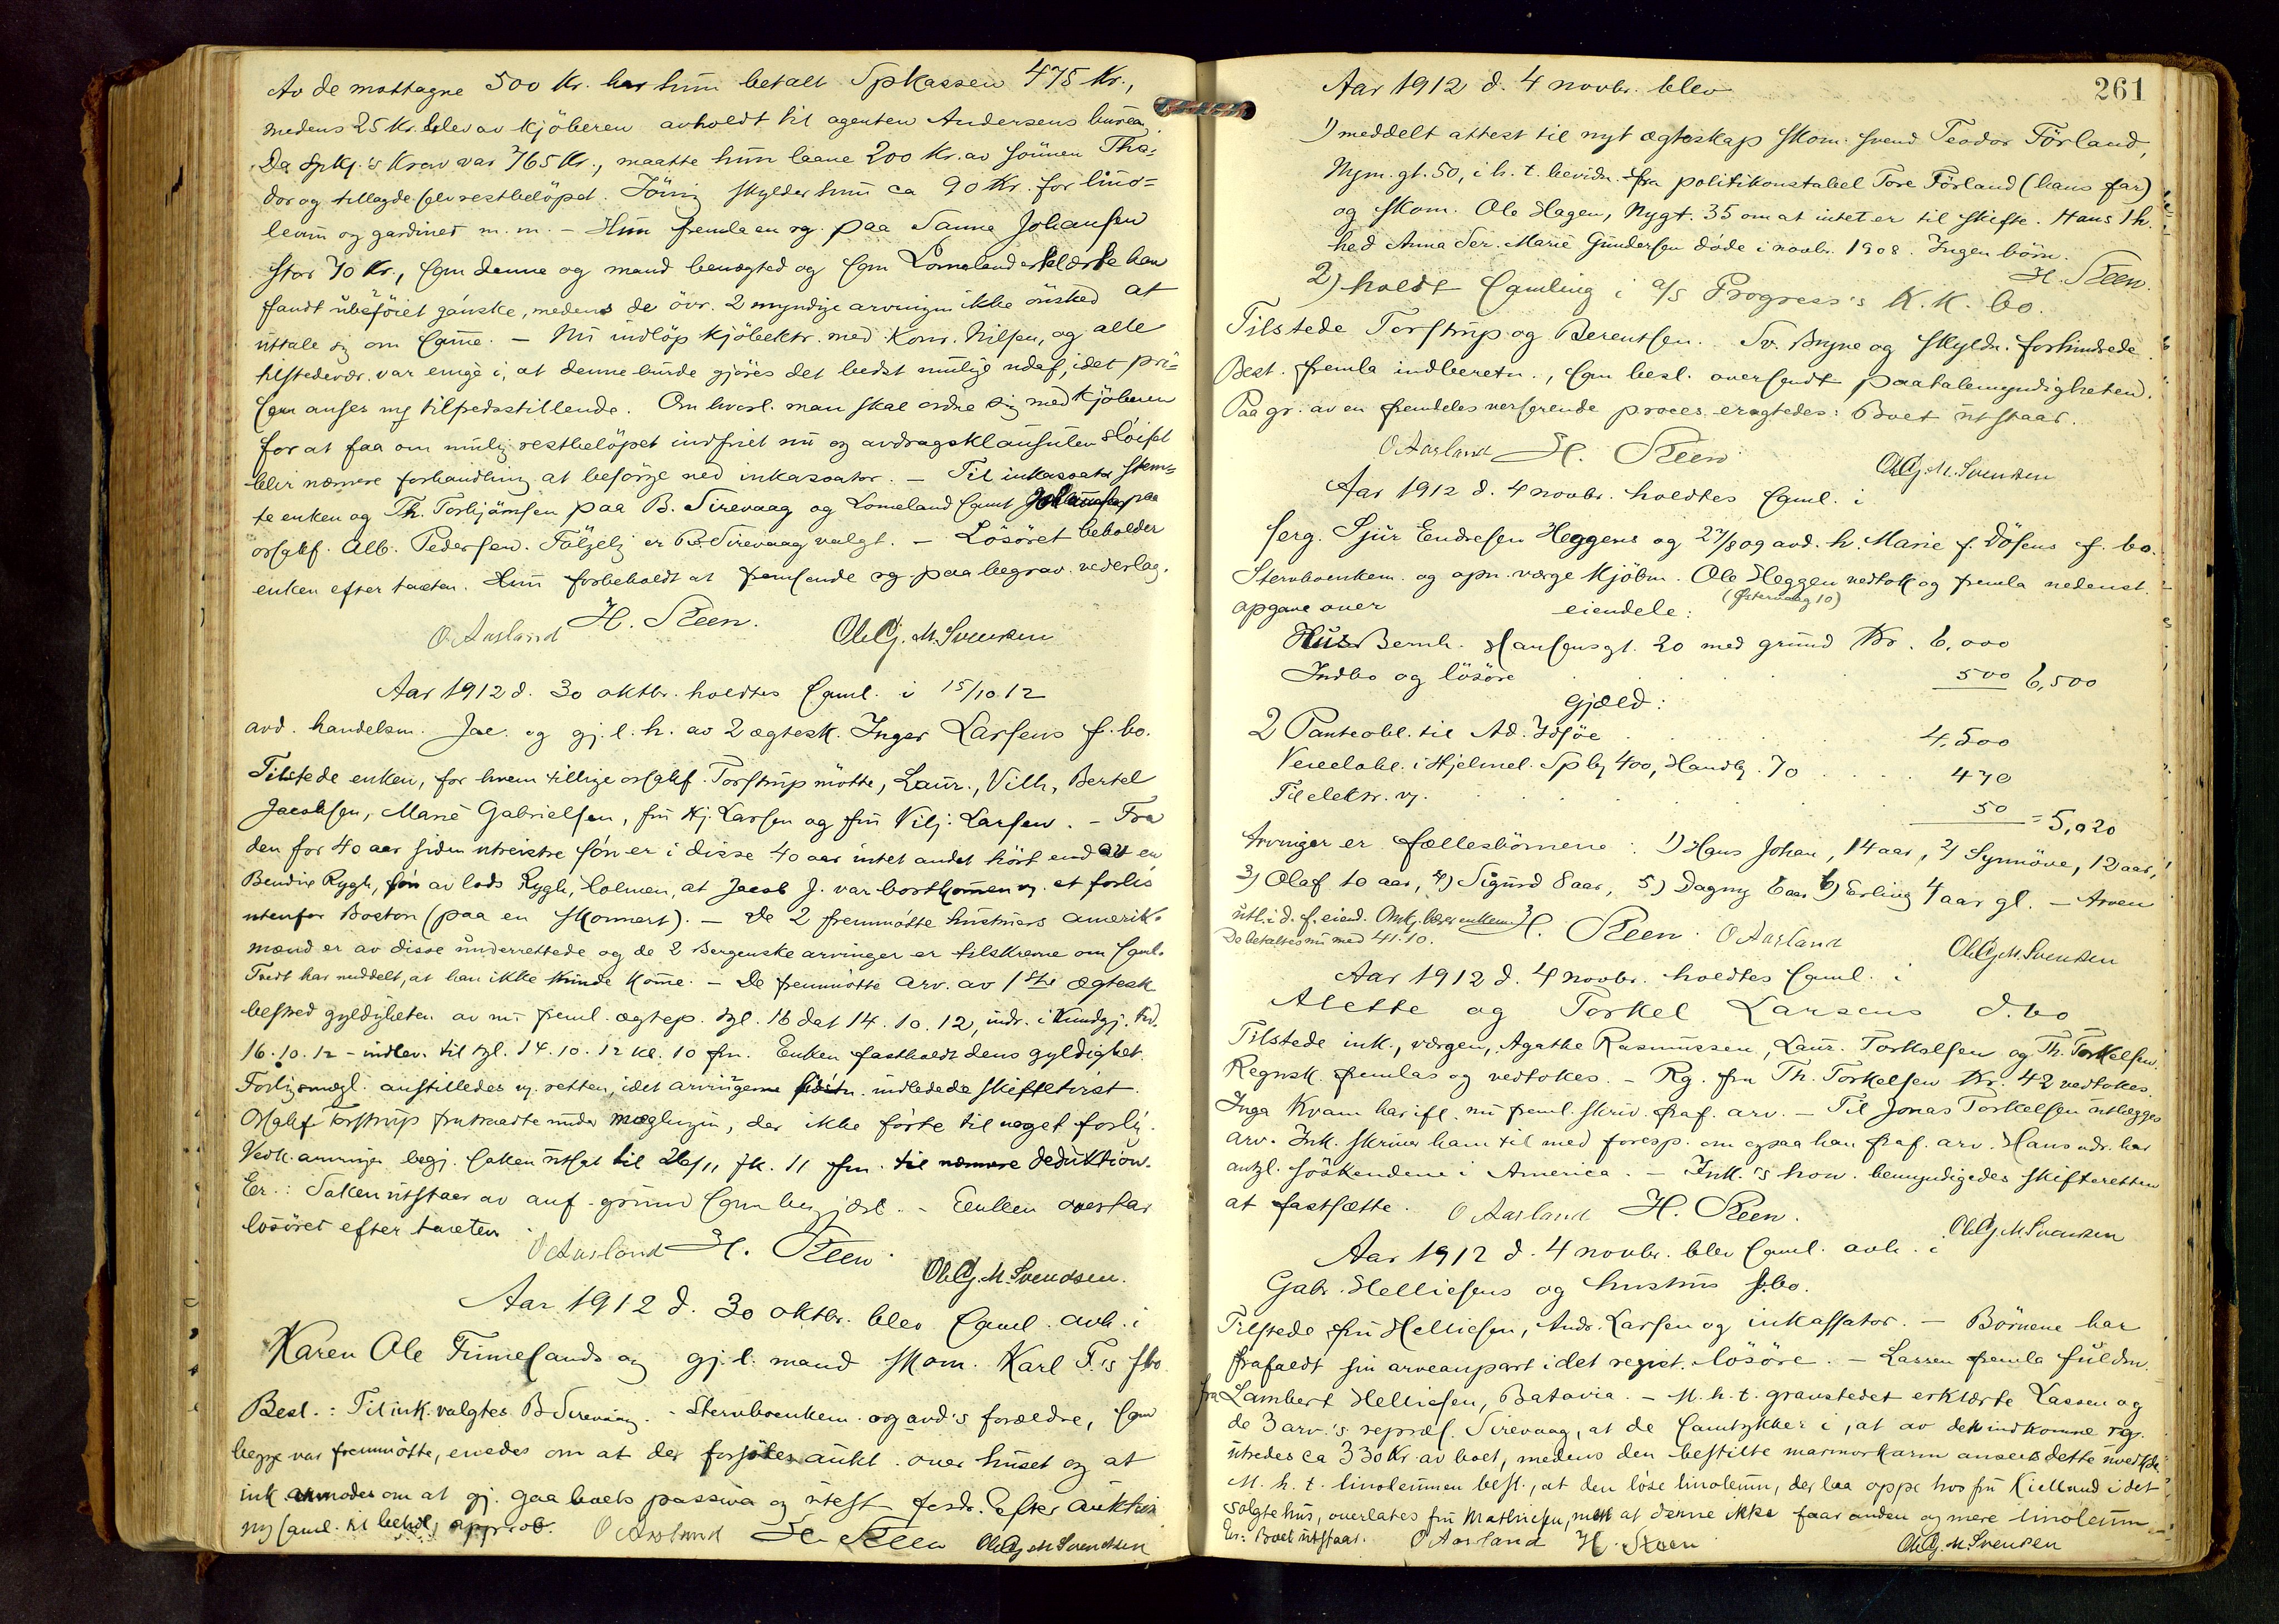 Av de mottagne 500 Kr. har hun betalt Spkassen 475 Kr.,
medens 25 Kr. blev av kjöberen avholdt til agenten Andersens bureau.
Da Spkj.'s Krav var 765 Kr., maatte hun laane 200 Kr. av sönnen Tha=
dor og tillagde selv restbelöpet. skylder hun ca 90 Kr. for lino=
leum og gardiner m. m. – Hun fremla en rg. paa Sanna Johansen
stor 70 Kr., som denne og mand benegted og som Lomeland erklærte han
fandt ubeföiet ganske, medens de övr. 2 myndige arvinger ikke önsked at
uttale sig om samme. – Nu indlöp kjöbektr. med Konr. Nilsen, og alle
tilstedevær. var enige i, at denne burde gjöres det bedst mulige utaf, idet pri=
sen anses tilfredsstillende. Om hvorl. man skal ordne sig med kjöberen
for at faa om mulig restbelöpet indfriet nu og avdragsklausulen slöifet
blir nærmere forhandling at besörge ved inkassator. – Til inkassator stem=
te enken og Th. Torbjörnsen paa B. Sirevaag og Lomeland samt Johannsen paa
orsakf. Alb. Pedersen. Fölgelig er B. Sirevaag valgt. – Lösöret beholder
enken efter taxten. Hun forbeholdt at fremsende rg. paa begrav. vederlag.
O Aasland H. Steen. Ole Gj. M. Svendsen
Aar 1912 d. 30 oktbr. holdtes saml. i 15/10.12
avd. handelsm. Jac. og gj. l. h. av 2 ægtesk. Inger Larsens f. bo.
Tilstede enken, for hvem tillige orsakf. Torstrup mötte, Laur., Vilh., Bertel
Jacobsen, Marie Gabrielsen, fru Hj. Larsen og fru Vilj. Larsen. – Fra
den for 40 aar siden utreiste sön er i disse 40 aar intet andet hört end at en
Bendix Rygh, sön av lods Rygh, holmen, at Jacob J. var bortkommen v. et forlis
utenfor Boston (paa en skonnert). – De 2 fremmötte hustruers amerik.
mænd er av disse underrettede og de 2 Bergenske arvinger er tilskrevne om saml.
Tvedt har meddelt, at han ikke kunde komme. – De fremmötte arv. av 1ste ægtesk.
bestred gyldigheten av nu freml. ægtep. tgl. 16 dat 14.10.12, indr. i Kundgj. tid.
16.10.12 – indlev. til tgl. 14.10.12 kl. 10 fm. Enken fastholdt dens gyldighet.
Forligsmægl. anstilledes v. retten, idet arvingerne indledede skiftetvist.
Orsakf. Torstrup fratraadte under mæglingen, der ikke förte til noget forlig.
Vedk. arvinger begj. saken utsat til 26/11 fk. 11 fm. til nærmere deduktion.
Er.: Saken utstaar av anf. grund som begjært. – Enken overtar
lösöret efter taxten.
O Aasland H. Steen. Ole Gj. M. Svendsen.
Aar 1912 d. 30 oktbr. blev saml. avh. i
Karen Ole Tunelands og gj. l. mand skom. Karl T.'s f bo.
Besl.: Til ink. valgtes B Sirevaag. – Stervboenkem. og avd's forældre, som
begge var fremmötte, enedes om at der forsökes aukt. over huset og at
ink. anmodes om at gj. gaa boets passiva og utest. fordr. Efter auktion
ny saml. til behdl. approb. O Aasland H. Steen Ole Gj. M Svendsen
261
Aar 1912 d. 4 novbr. blev
1) meddelt attest til nyt ægteskap skom. svend Teodor Förland,
Nym. gt. 50, i h. t. bevidn. fra politikonstabel Tore Förland (hans far)
og skom. Ole Hagen, Nygt. 35 om at intet er til skifte. Hans 1 h.
hed Anna Ser. Marie Gundersen döde i novbr. 1908. Ingen börn.
H. Steen.
2) holdt samling i a/s Progress's K. K. bo.
Tilstede Torstrup og Berentsen. Sv. Bryne og skyldn. forhindrede.
Best. fremla indberetn., som besl. oversendt paatalemyndigheten.
Paa gr. av en fremdeles verserende proces eragtedes: Boet utstaar.
O Aasland H. Steen Ole Gj. M. Svendsen
Aar 1912 d. 4 novbr. holdtes saml. i
serg. Sjur Endresen Heggens og 27/8 09 avd. h. Marie f. Dösens f. bo.
Stervboenkem. og opn. værge kjöbm. Ole Heggen (Østervaag 10) vedtok og fremla nedenst.
opgave over eiendele:
Hus Bernh. Hansensgt. 20 med grund Kr. 6,000
Indbo og lösöre 500 6,500
Gjæld:
2 Panteobl. til Ad. Idsöe 4,500
Vexelobl. i Hjelmel. Spb 400, Handb. 70 470
Til elektr. v. 50 = 5,020
Arvinger er fællesbörnene: 1) Hans Johan, 14 aar, 2) Synnöve, 12 aar,
3) Olaf 10 aar, 4) Sigurd 8 aar, 5) Dagny 6 aar 6) Erling 4 aar gl. – Arven
utl. i d. f. eiend. Omk. bærer enkem. H. Steen. O Aasland
De betaltes nu med 41.10. Ole Gj. M. Svendsen
Aar 1912 d. 4 novbr. holdtes saml. i
Alette og Torkel Larsens d. bo
Tilstede ink., værgen, Agathe Rasmussen, Laur. Torkelsen og Th. Torkelsen.
Regnsk. fremlas og vedtokes. – Rg. fra Th. Torkelsen Kr. 42 vedtokes.
Inga Kvam har ifl. nu freml. skriv. fraf. arv. – Til Jonas Torkelsen utlægges
arv. Ink. skriver ham til med foresp. om ogsaa han fraf. arv. Hans adr. har
antgl. söskendene i America. – Ink.'s hon. bemyndigedes skifteretten
at fastsætte. O Aasland H. Steen. Ole Gj. M. Svendsen
Aar 1912 d. 4 novbr. blev saml. avh. i
Gabr. Helliesens og hustrus f. bo.
Tilstede fru Helliesen, Andr. Larsen og inkassator. – Börnene har
frafaldt sin arveanpart i det regist. lösöre. – Larsen fremla fuldm.
fra Lambert Helliesen, Batavia. – M. h. t. gravstedet erklærte Larsen og
de 3 arv.'s repræs. Sirevaag, at de samtykker i, at av den indkomne rg.
utredes ca 330 Kr. av boet, medens den bestilte marmorkarm ansees dette uvedk.
M. h. t. linoleumen best., at den löse linoleum, der laa oppe hos fru Kielland i det
solgte hus, overlates fru Mathiesen, mot at denne ikke faar anden og mere linoleum.
Er: Boet utstaar. O Aasland H. Steen Ole Gj. M. Svendsen